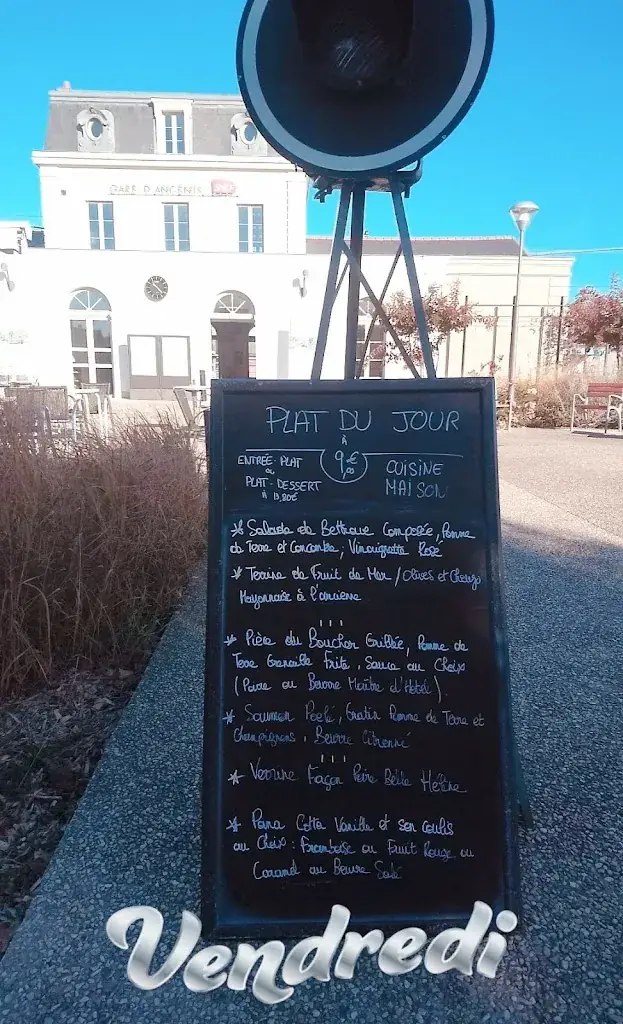 GARE D'ANCENIS SNCF
PLAT DU JOUR
à
9,€00
ENTRÉE-PLAT
ou
PLAT-DESSERT
à 13,80€
CUISINE
MAISON
* Salade de Bettrave Composée, Pomme
de Terre et Concombre, Vinaigrette Rosé
* Terrine de Fruit de Mer / Olives et Chorizo
Mayonnaise à l'ancienne
* Pièce du Boucher Grillée, Pomme de
Terre Grenaille Frite, Sauce au Choix
(Poivre ou Beurre Maître d'Hotel).
* Saumon Poelé, Gratin Pomme de Terre et
Champignons, Beurre Citronné
* Verrine Façon Poire Belle Hélène
* Pana Cotta Vanille et son Coulis
au Choix : Framboise ou Fruit Rouge ou
Caramel au Beurre Salé
Vendredi